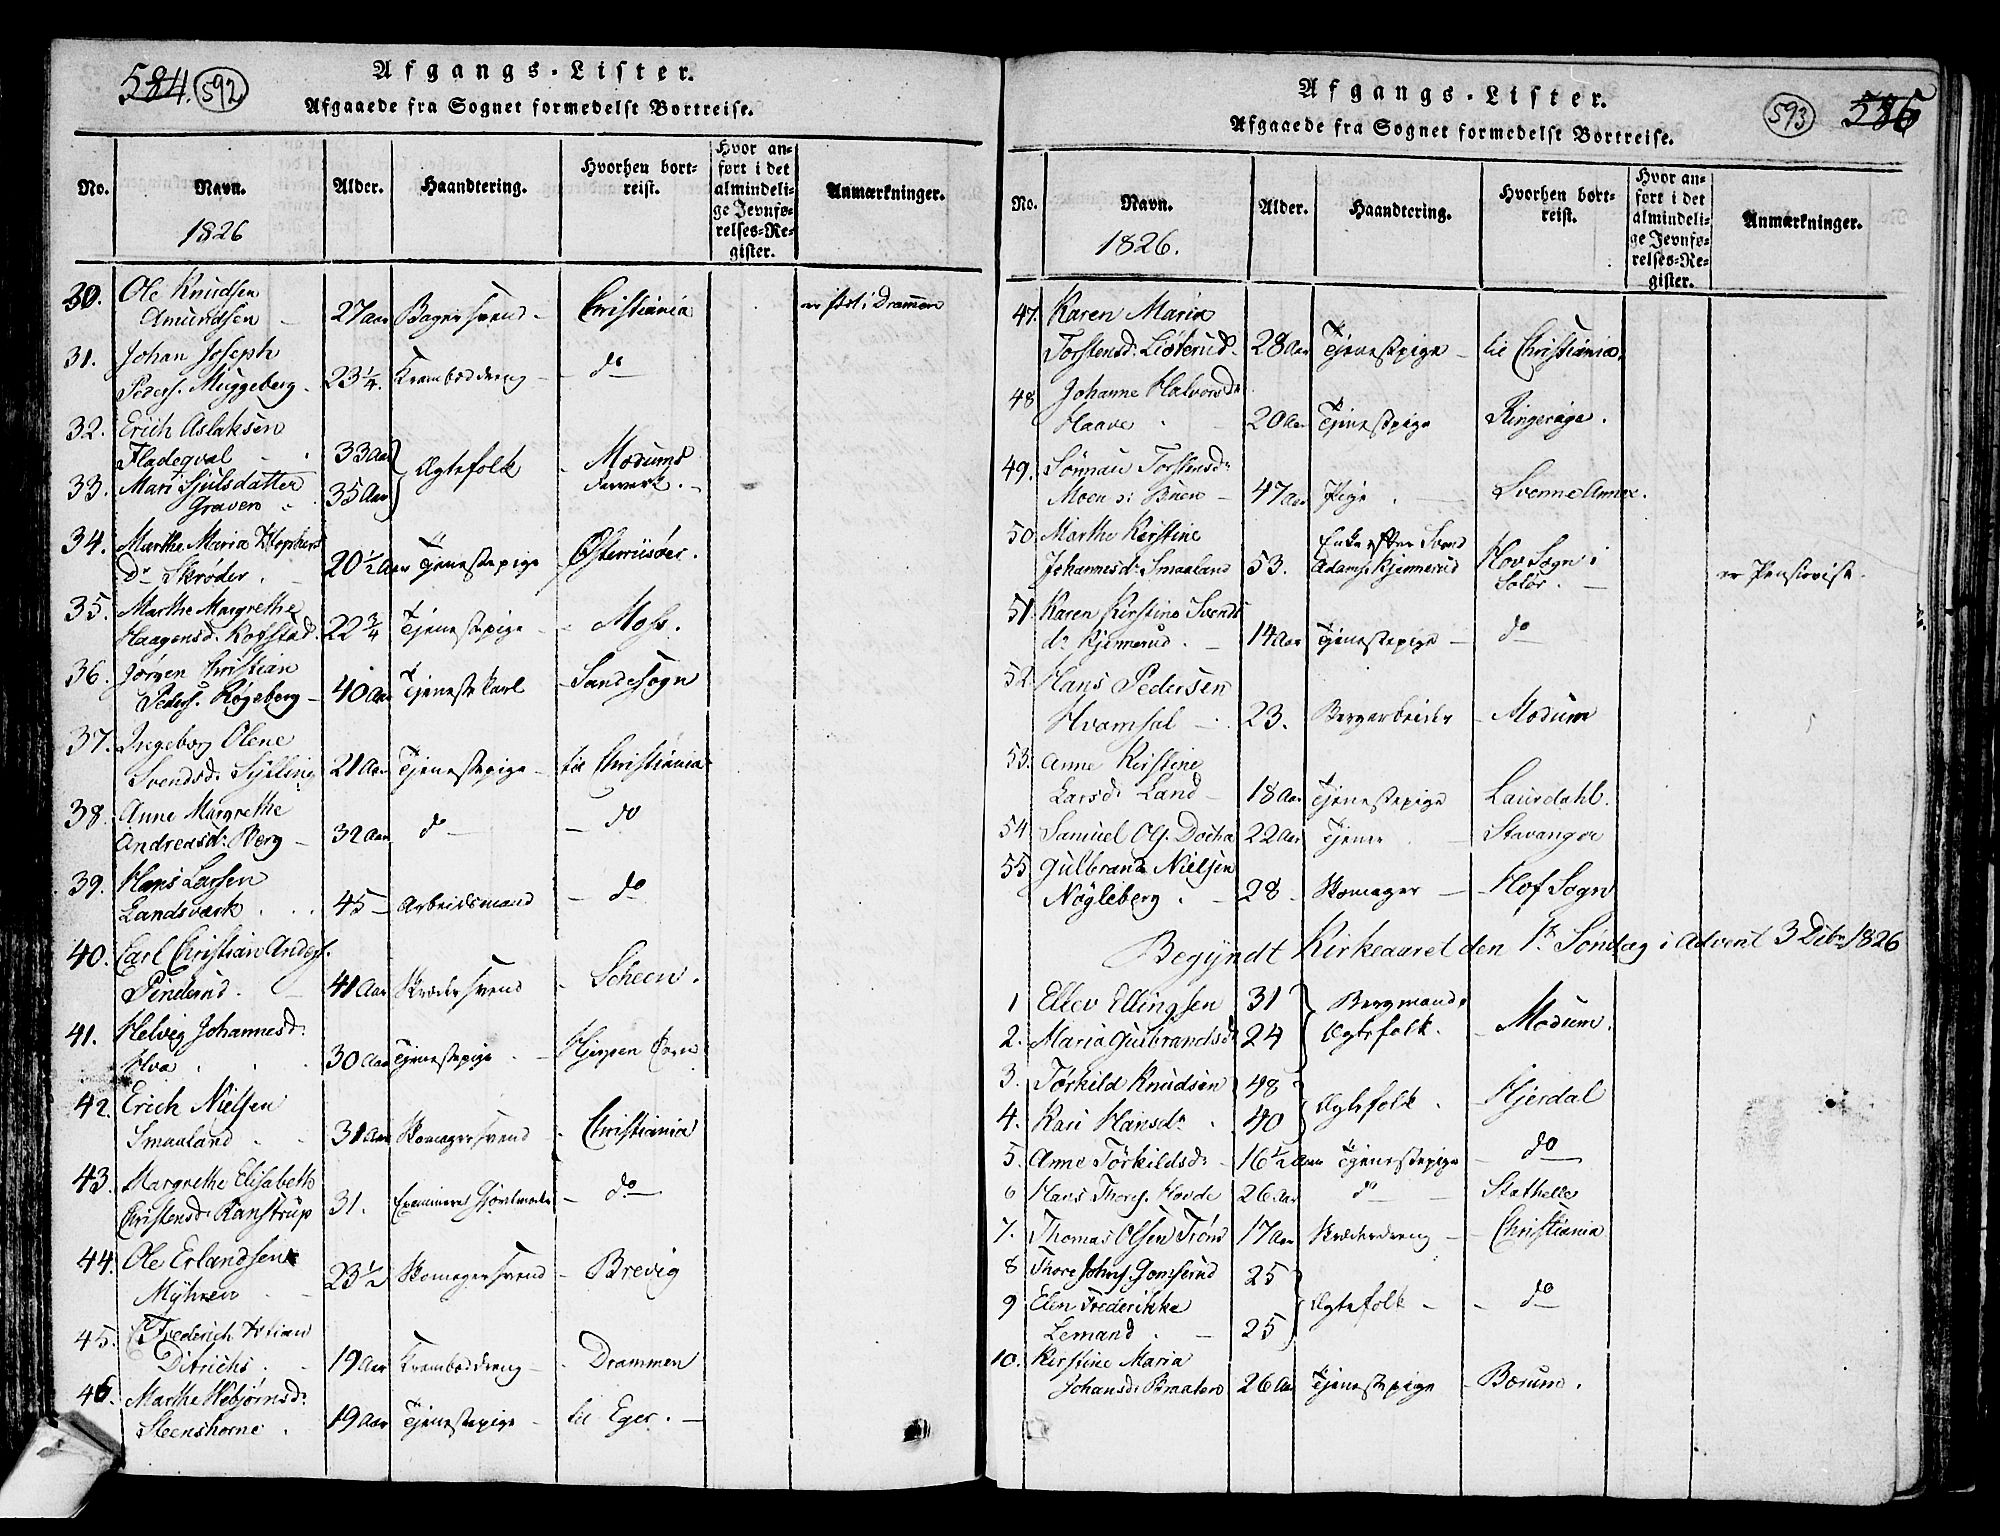 584. 592
Afgangs-Lister.
Afgaaede fra Sognet formedelst Bortreise.
No. Navn. Alder. Haandtering. Hvorhen bort-reist. Hvor an-ført i det almindeli-ge Jevnfø-relses-Re-gister. Anmærkninger.
1826
30. Ole Knudsen
Amundsen - 27 aar Bagersvend - Christiania er ført i Drammen
31. Johan Joseph
Peders. Muggeberg - 23 1/4. Kramboddreng - do
32. Erich Aslaksen
Fladeqval 33 Aar
Ægtefolk - Modums
33. Mari Sjulsdatter
Graven 35 Aar
34. Marthe Maria
Dr Skrøder. 20 1/2 Aar Tjenestepige Østerriisøer.
35. Marthe Margrethe
Haagensd. Kofstad. 22 3/4 Tjenestepige - Moss.
36. Jørgen Christian
Peders. Røgeberg - 40 Aar Tjenestekarl - Sandesogn
37. Ingeborg Olene
Svendsd. Sylling 21 Aar Tjenestepige - til Christiania
38. Anne Margrethe
Andreasd. Berg - 32 Aar do - do
39. Hans Larsen
Landsværk 45 - Arbeidsmand - do
40. Carl Christian Anders.
Pinderud. 41 Aar Skrædersvend - Scheen.
41. Helvig Johannesd.
Hva 30 Aar Tjenestepige - Hjerpen
42. Erich Nielsen
Smaaland 31 Aar Skomagersvend - Christiania
43. Margrethe Elisabeth
Christensd. Ranstrup 31. Examineret Jordmoder - do
44. Ole Erlandsen
Myhren 23 1/2 Skomagersvend - Brevig
45. Frederich
Ditrichs. 19 Aar Kramboddreng - Drammen
46. Marthe Webjørnsd.
Steenshorne 19 Aar Tjenestepige - til Eger. -
Afgangs-Lister.
593 585
Afgaaede fra Sognet formedelst Bortreise.
No. Navn. Alder. Haandtering. Hvorhen bort-reist. Hvor an-ført i det almindeli-ge Jevnfø-relses-Re-gister. Anmærkninger.
1826.
47. Karen Maria
Torstensd. Listerud - 28 Aar Tjenestepige - til Christiania.
48 Johanne Halvorsdr
Haave 20 Aar Tjenestepige Ringerige.
49. Sönnau Torstensdr
Moen 47 Aar Pige - Svenne
50 Marthe Kirstine Enke efter Svend
Johannesd. Smaaland 53. Adams. Kjemerud Hov Sogn i Solør. er Pensionist.
51. Karen Kirstine Svends
dr Kjemerud. - 14 Aar Tjenestepige - do
52 Hans Pedersen
Hvamsal - 23. Bergarbeider - Modum
53. Anne Kirstine
Larsd. Land - 18 Aar Tjenestepige Laurdahl.
54. Samuel Ols. Docka 22 Aar Tjener - Stavanger
55 Gulbrand Nielsen
Nøgleberg. - 28 - Skomager - Hof Sogn
Begyndt Kirkeaaret den 1te Søndag i Advent 3 Dcbr 1826
1 Ellev Ellingsen 31 Bergmands
2. Maria Gulbrandsd. 24 Ægtefolk. - Modum.
3. Törkild Knudsen 48
Ægtefolk. Hjerdal
4. Kari Hansdr 40
5. Anne Törkildsd. 16 1/2 Aar Tjenestepige - do
6 Hans Thores. Hovde 26 Aar do - Stathelle
7. Thomas Olsen Trönd 17 Aar Skræderdreng - Christiania
8 Thore Johns. Gomserud 25
Ægtefolk - do
9 Elen Frederikke
Lemand. - 25
10. Kirstine Maria
Johansd. Braaten 26 Aar Tjenestepige - Bærum.